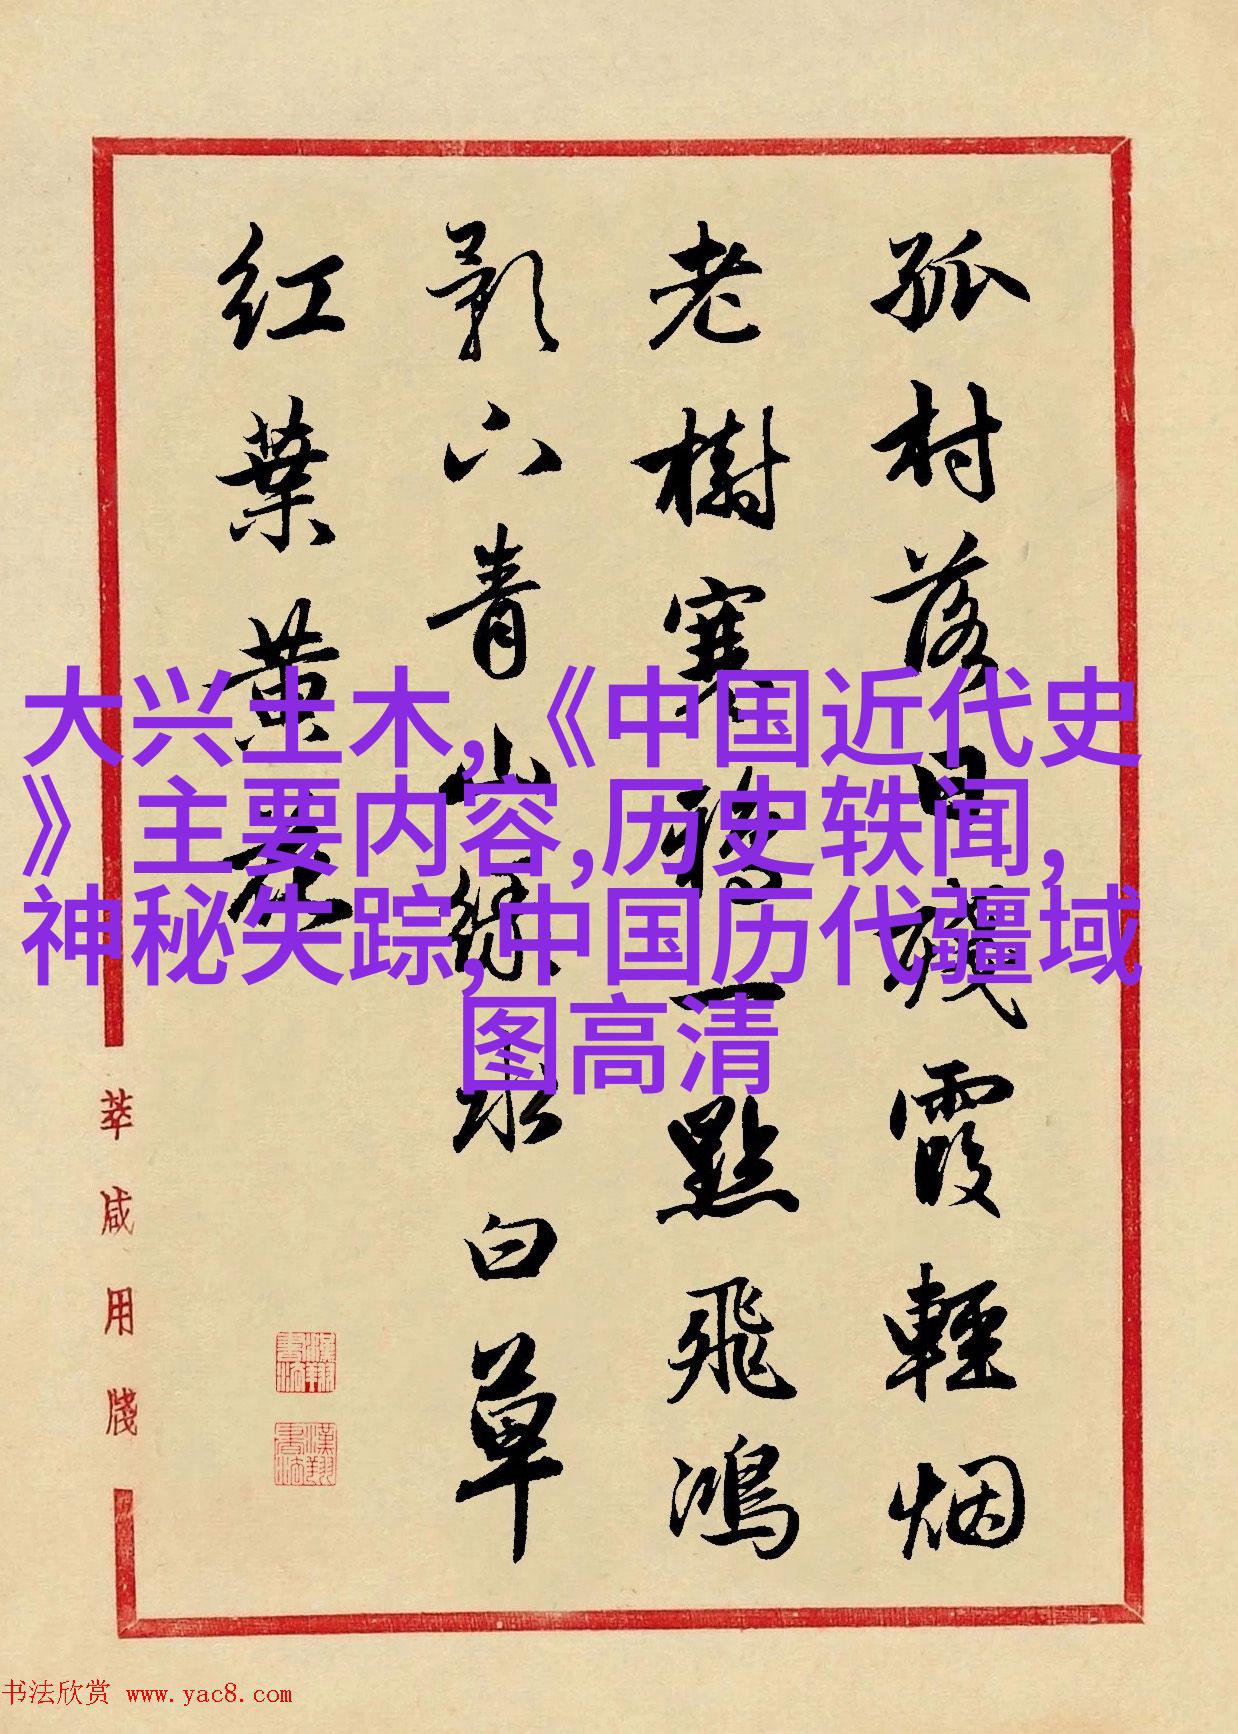 孤村落日殘霞輕烟
老樹寒鴉一點飛鴻
影下青山綠水白草
红葉黄花
大兴土木,《中国近代史
》主要内容,历史轶闻,
神秘失踪,中国历代疆域
图高清
咸用牋
漢翔書法
漢翔書法
书法欣赏 www.yac8.com